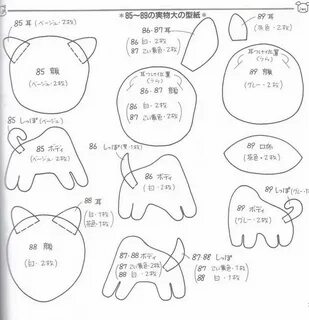 ＊85～89の実物大の型紙＊
85 耳
(ベージュ・2枚)
86・87 耳
86 (白・2枚)
87 (こい黄色・2枚)
89 耳
(茶色・2枚)
85 顔
(ベージュ・2枚)
耳つけ位置
(うら)
86・87 顔
86 (白・2枚)
87 (こい黄色・2枚)
耳つけ位置
(うら)
89 顔
(グレー・2枚)
85 しっぽ(ベージュ)
85 ボディ
(ベージュ・2枚)
86 しっぽ
86 ボディ
(白・2枚)
89 口向
(茶色・2枚)
89 しっぽ
89 ボディ
(グレー・2枚)
88 耳
(白・1枚)
(茶色・1枚)
88 顔
(白・2枚)
87・88 ボディ
87 (こい黄色・2枚)
88 (白・2枚)
87・88 しっぽ
87 (こい黄色・1枚)
88 (白・1枚)